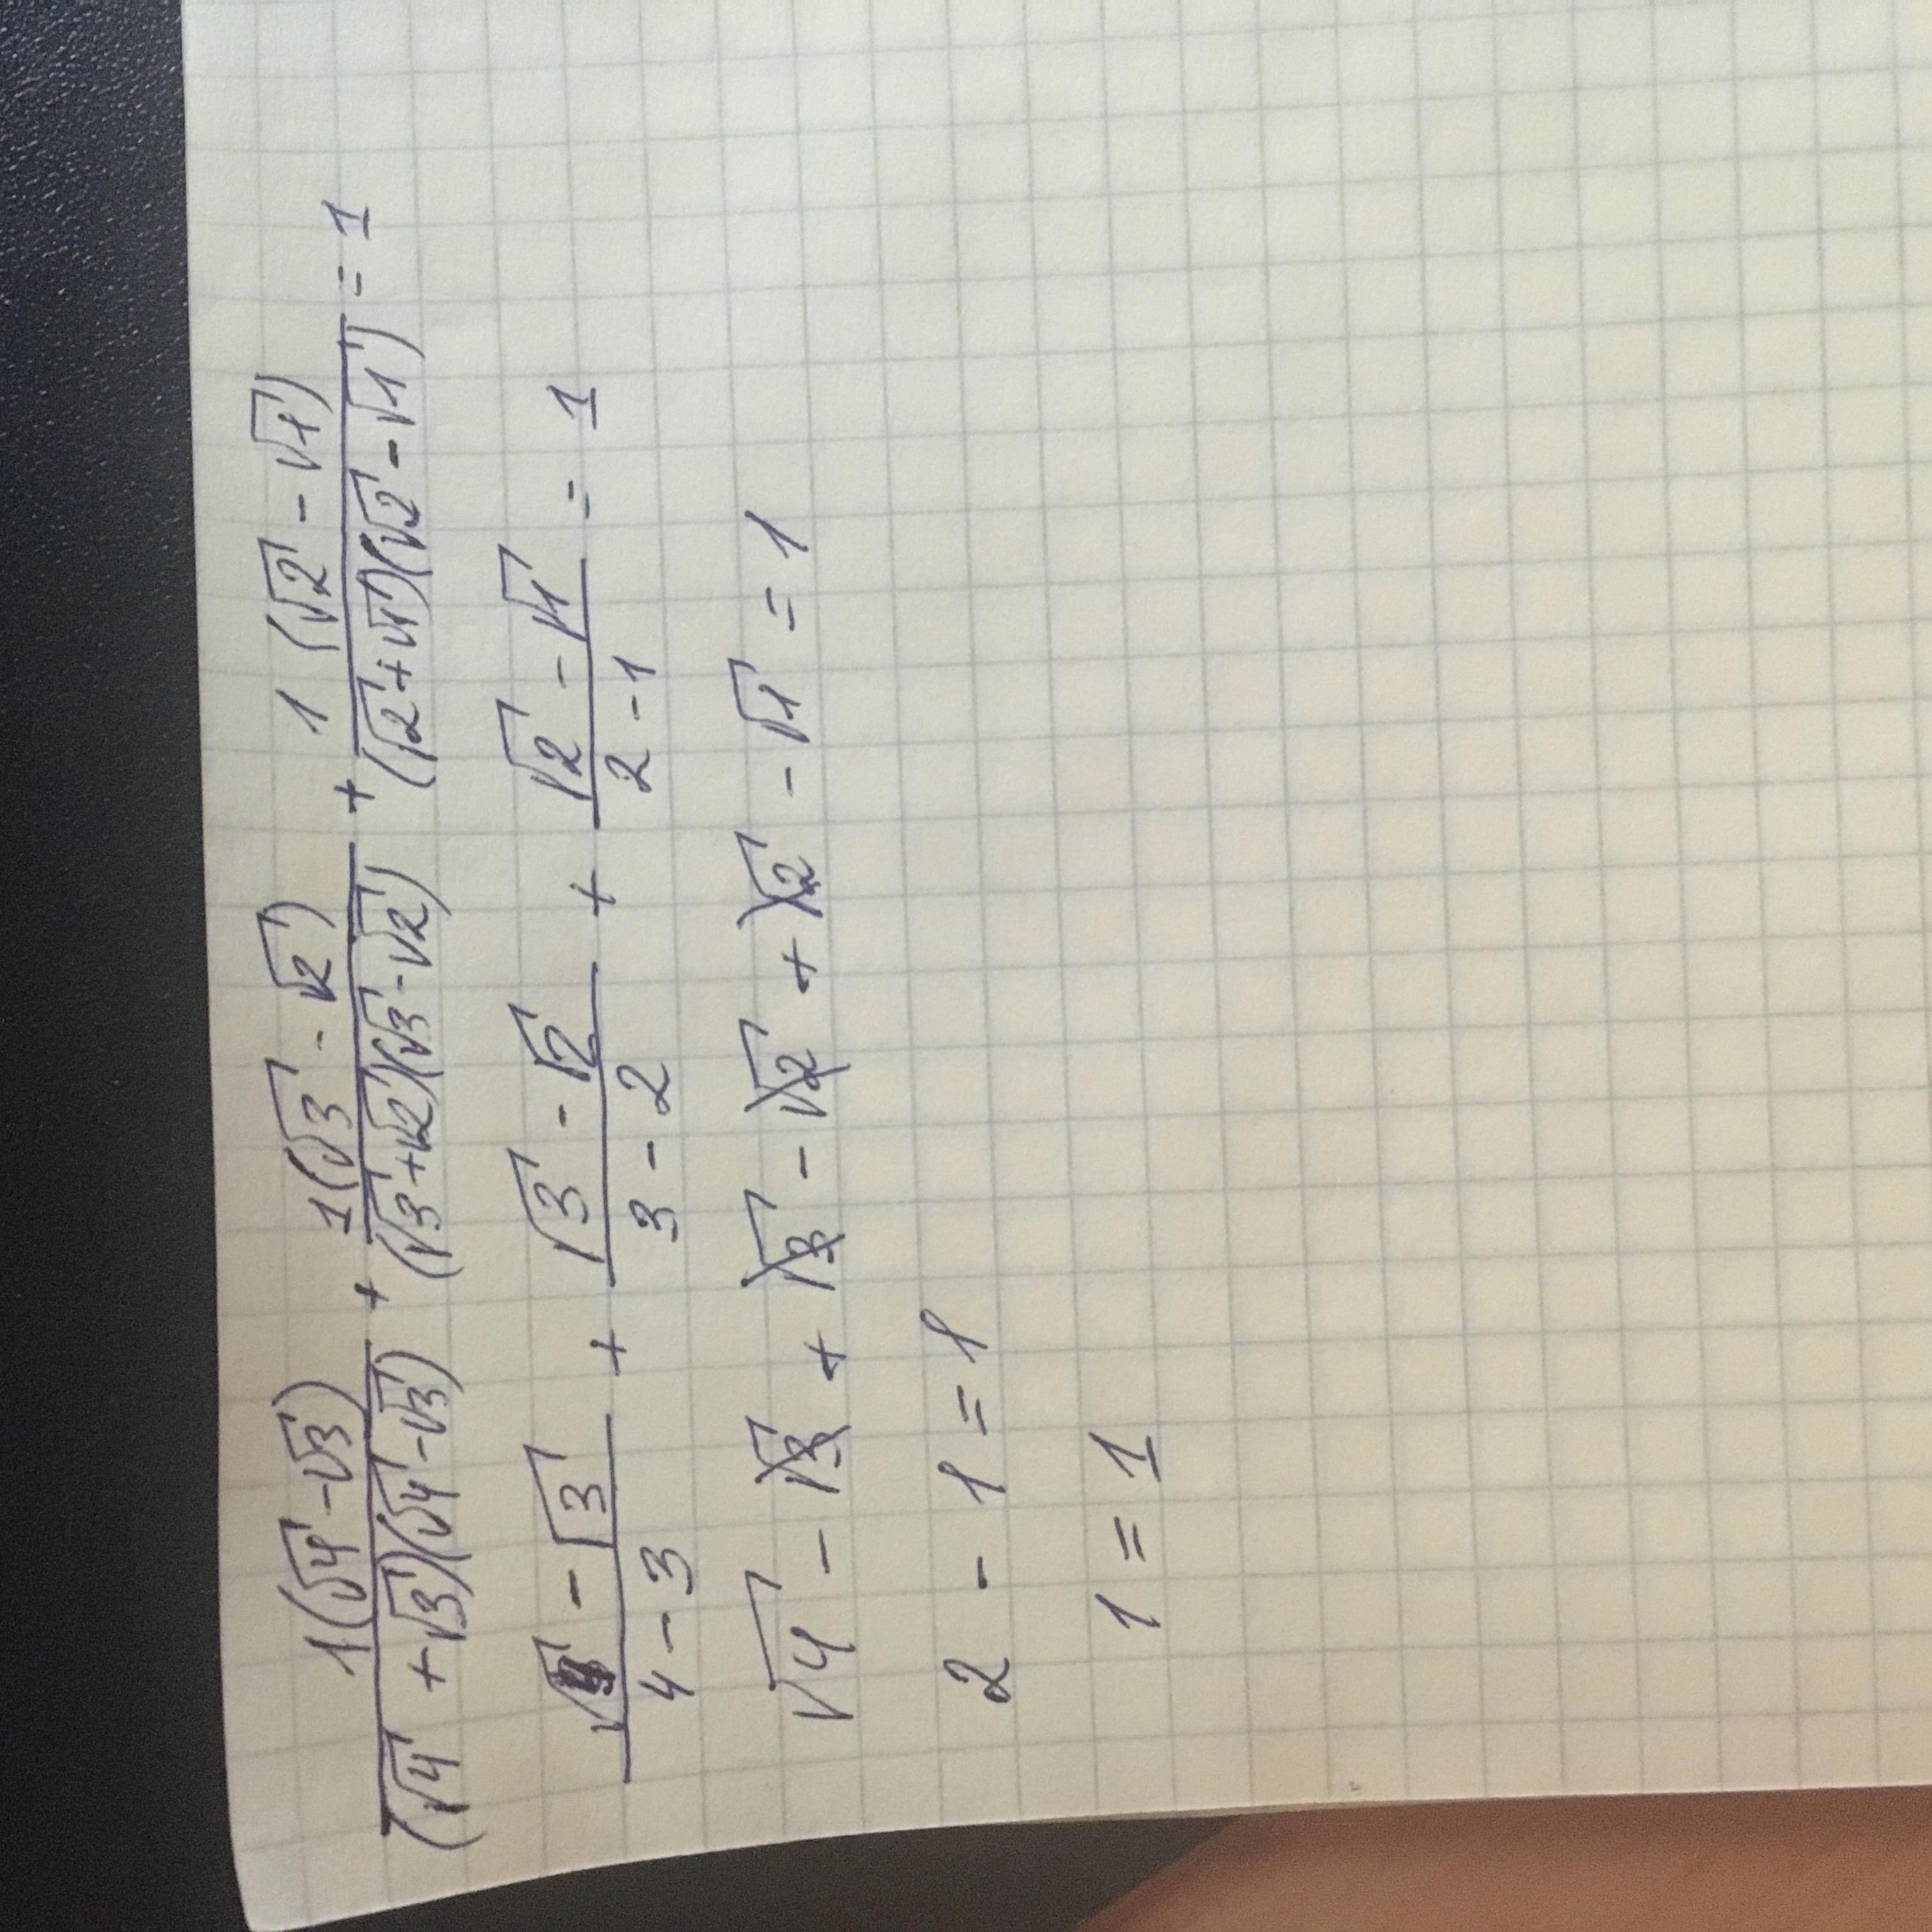 1(√4 - √3) / (√4 + √3)(√4 - √3) + 1(√3 - √2) / (√3 + √2)(√3 - √2) + 1(√2 - √1) / (√2 + √1)(√2 - √1) = 1
√4 - √3 / 4 - 3 + √3 - √2 / 3 - 2 + √2 - √1 / 2 - 1 = 1
√4 - √3 + √3 - √2 + √2 - √1 = 1
2 - 1 = 1
1 = 1